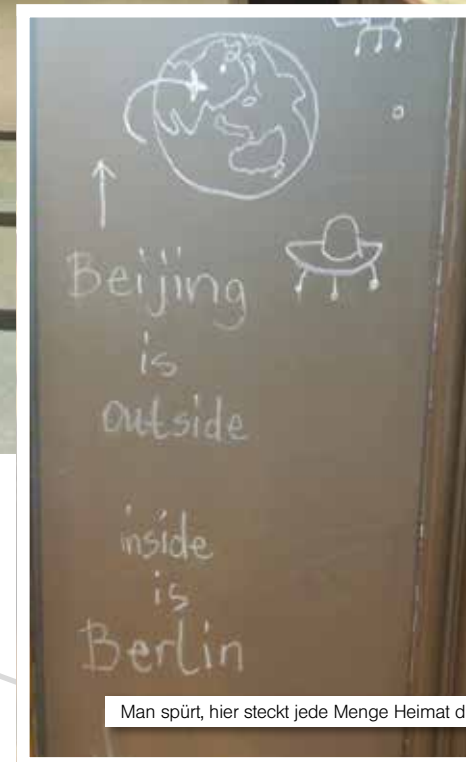 Beijing
is
outside
inside
is
Berlin
Man spürt, hier steckt jede Menge Heimat